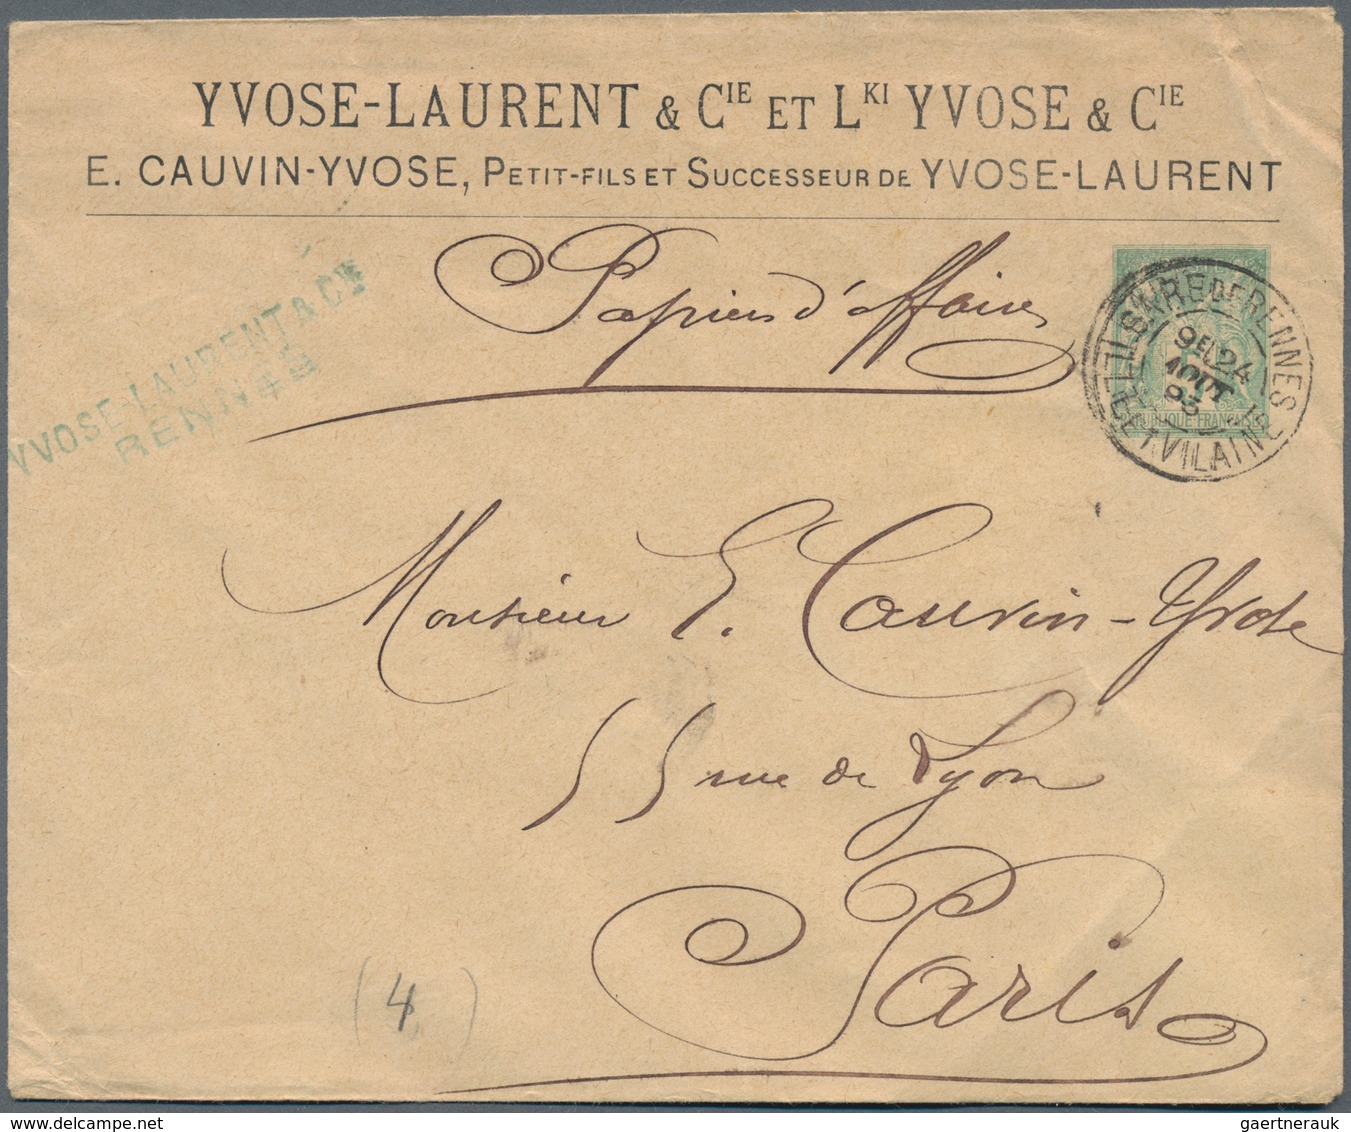 YVOSE-LAURENT & CIE ET LKI YVOSE & CIE
E. CAUVIN-YVOSE, PETIT-FILS ET SUCCESSEUR DE YVOSE-LAURENT
Papiers d'affaires
YVOSE-LAURENT & Cie
RENNES
GARE DE RENNES
9E 24
AOUT
95
ILLE-ET-VILAINE
RÉPUBLIQUE FRANÇAISE
Monsieur E. Cauvin-Yvose
55 rue de Lyon
Paris
(4)
gaertnerauk